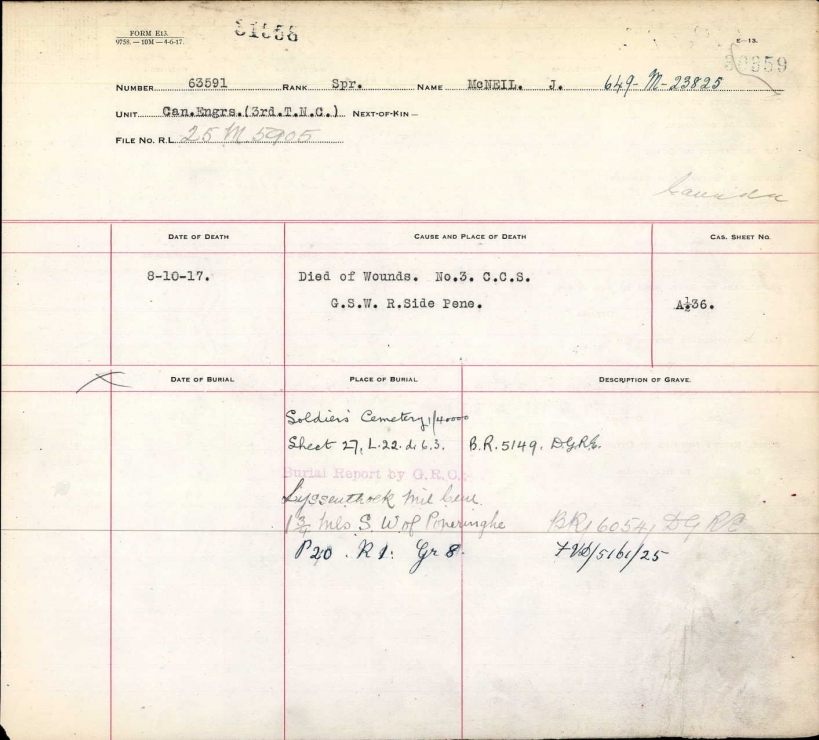 FORM E13.
9758. — 10M — 4-6-17.
E—13.
NUMBER 63591 RANK Spr. NAME McNEIL. J. 649-M-23825
UNIT Can.Engrs.(3rd.T.N.C.) NEXT-OF-KIN —
FILE NO. R.L. 25 M 5905
Canada
DATE OF DEATH CAUSE AND PLACE OF DEATH CAS. SHEET NO.
8-10-17. Died of Wounds. No.3. C.C.S.
G.S.W. R.Side Pene. A½36.
DATE OF BURIAL PLACE OF BURIAL DESCRIPTION OF GRAVE.
Soldiers' Cemetery 1/40000
Sheet 27, L.22.d.6.3. B.R. 5149. D.G.R.E.
Burial Report by G.R.C:-
Lyssenthoek Mil Cem.
1¾ Mls S.W. of Poperinghe BR 16054 D G R E
P20. R1. Gr 8.